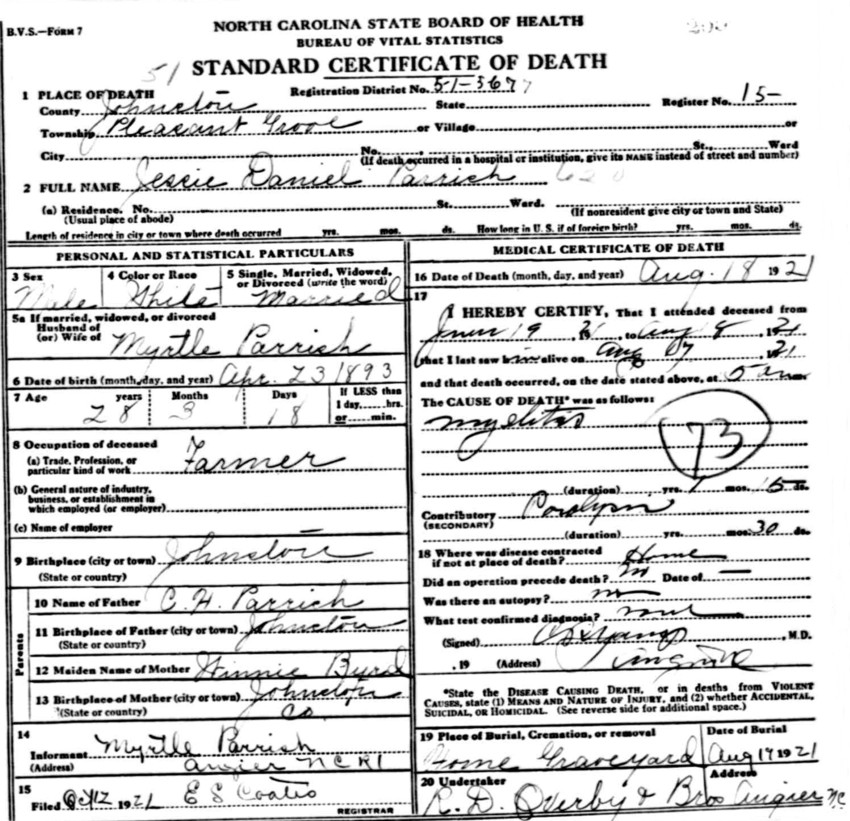 B.V.S.—FORM 7
NORTH CAROLINA STATE BOARD OF HEALTH
BUREAU OF VITAL STATISTICS
STANDARD CERTIFICATE OF DEATH
51
1 PLACE OF DEATH Registration District No. 51-3677
County Johnston State Register No. 15-
Township Pleasant Grove or Village or
City No. St., Ward
(If death occurred in a hospital or institution, give its NAME instead of street and number)
2 FULL NAME Jessie Daniel Parrish
(a) Residence. No. St. Ward.
(Usual place of abode) (If nonresident give city or town and State)
Length of residence in city or town where death occurred yrs. mos. ds. How long in U. S. if of foreign birth? yrs. mos. ds.
PERSONAL AND STATISTICAL PARTICULARS
3 Sex 4 Color or Race 5 Single, Married, Widowed,
or Divorced (write the word)
Male White Married
5a If married, widowed, or divorced
Husband of
(or) Wife of Myrtle Parrish
6 Date of birth (month, day, and year) Apr. 23 1893
7 Age years Months Days If LESS than
1 day, hrs.
28 3 18 or min.
8 Occupation of deceased
(a) Trade, Profession, or
particular kind of work Farmer
(b) General nature of industry,
business, or establishment in
which employed (or employer)
(c) Name of employer
9 Birthplace (city or town) Johnston
(State or country)
Parents
10 Name of Father C. H. Parrish
11 Birthplace of Father (city or town) Johnston
(State or country)
12 Maiden Name of Mother Winnie Byrd
13 Birthplace of Mother (city or town) Johnston
(State or country) Co.
14
Informant Myrtle Parrish
(Address) Angier NC R1
15
Filed Oct 12 1921 E S Coats
REGISTRAR
MEDICAL CERTIFICATE OF DEATH
16 Date of Death (month, day, and year) Aug. 18 1921
17
I HEREBY CERTIFY, That I attended deceased from
19 21, to Aug 8, 1921
that I last saw him alive on Aug 1921
and that death occurred, on the date stated above, at 5 am
The CAUSE OF DEATH* was as follows:
Myelitis
73
(duration) yrs. 1 mos. 15 ds.
Contributory Paralysis
(SECONDARY)
(duration) yrs. mos. 30 ds.
18 Where was disease contracted
if not at place of death? Home
Did an operation precede death? no Date of —
Was there an autopsy? no
What test confirmed diagnosis?
(Signed) , M.D.
, 19 (Address)
*State the DISEASE CAUSING DEATH, or in deaths from VIOLENT
CAUSES, state (1) MEANS AND NATURE OF INJURY, and (2) whether ACCIDENTAL,
SUICIDAL, OR HOMICIDAL. (See reverse side for additional space.)
19 Place of Burial, Cremation, or removal Date of Burial
Home Graveyard Aug 19 1921
20 Undertaker Address
R. D. Overby & Bros Angier N.C